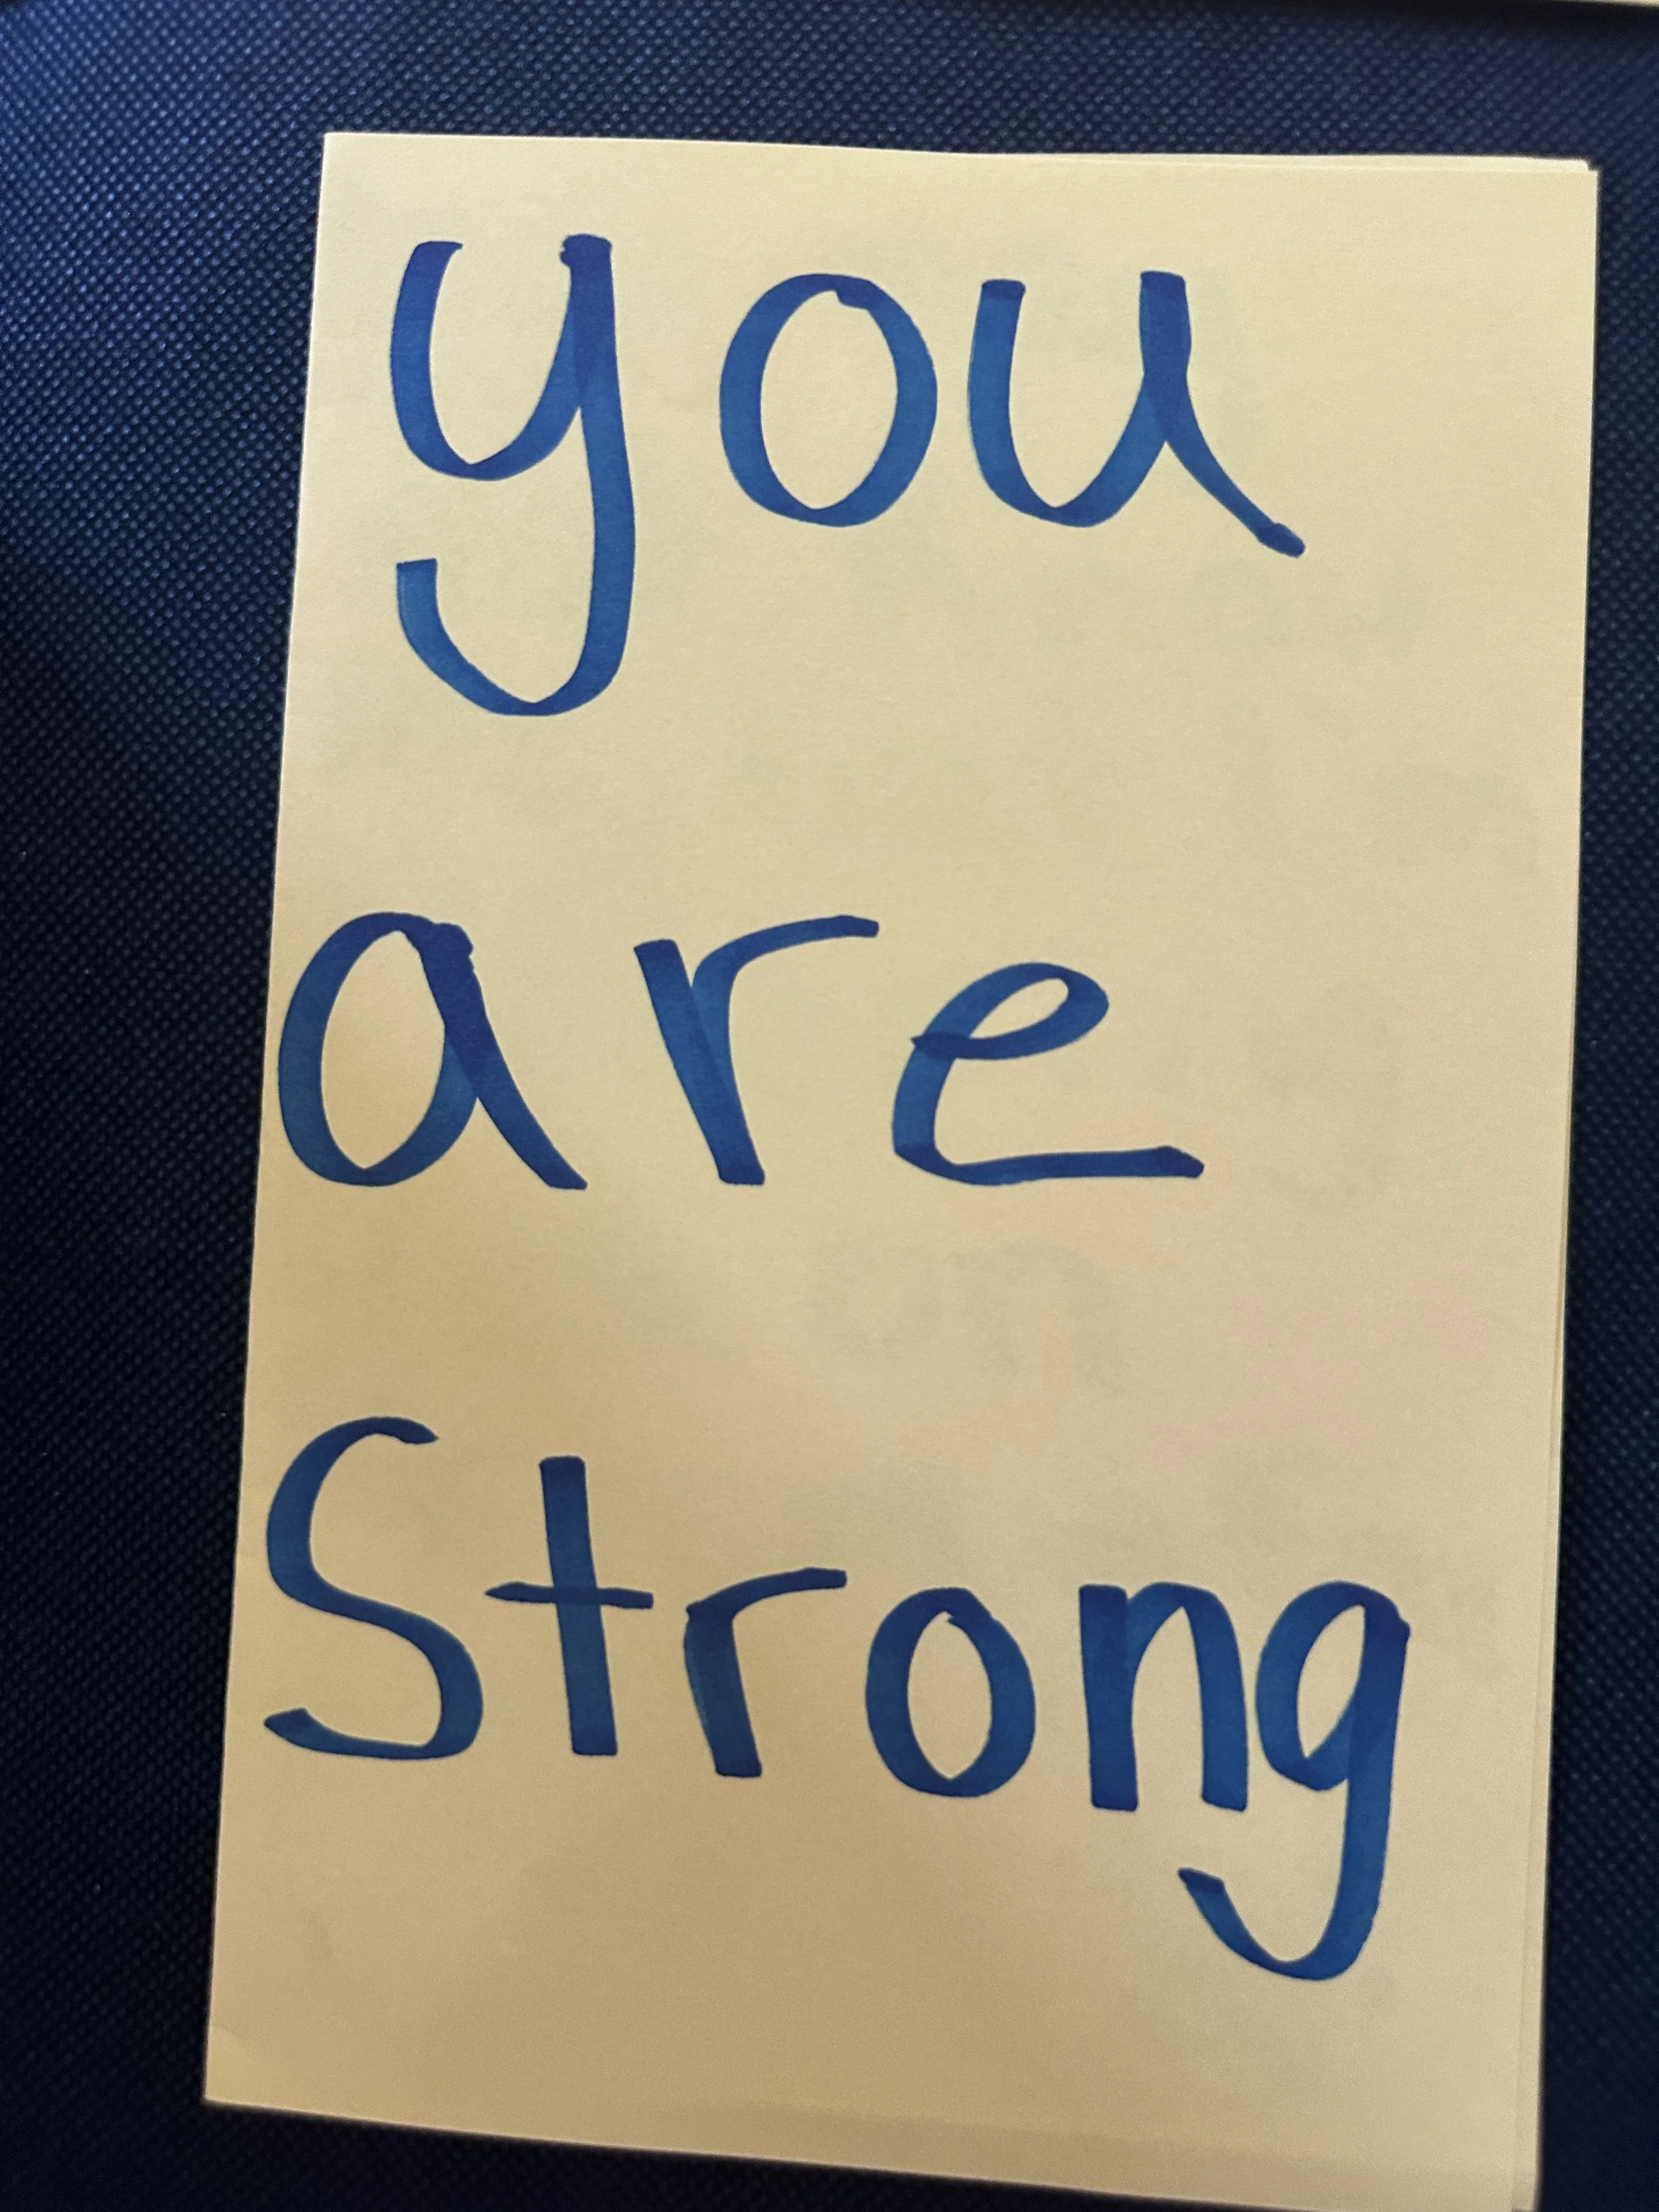 you
are
Strong